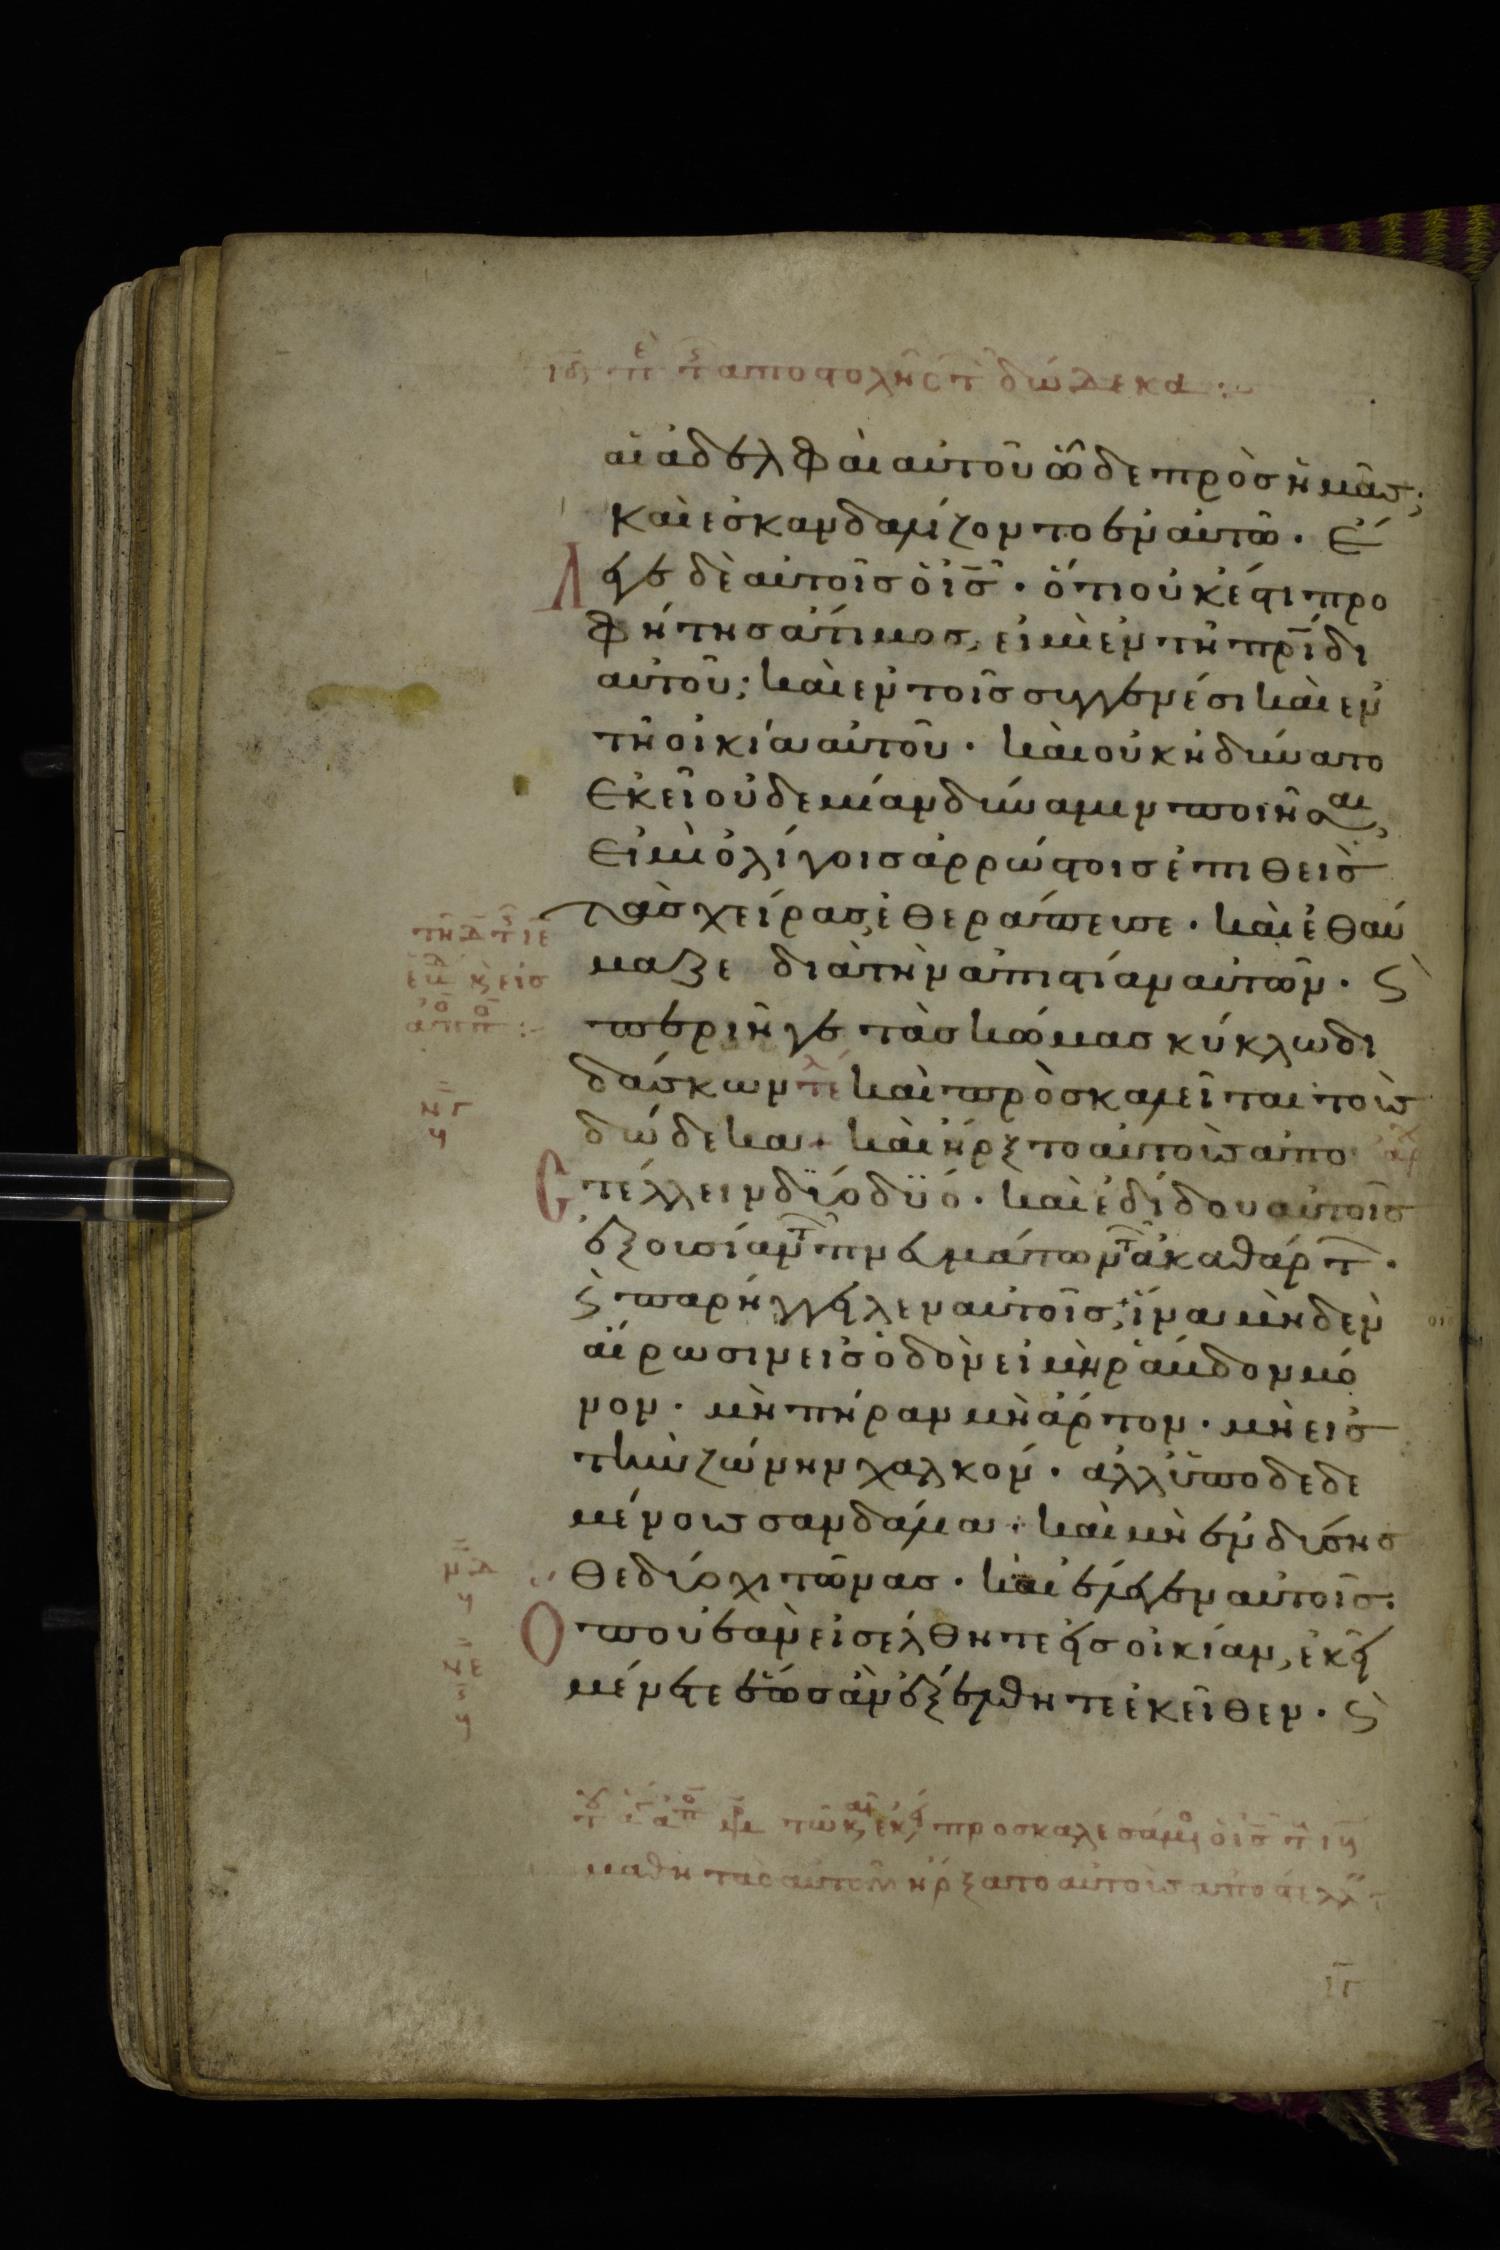 ιδ π ε τ αποστολης τ δώδεκα :
αἱ ἀδελφαὶ αὐτοῦ ὧδε πρὸς ἡμᾶς;
καὶ ἐσκανδαλίζοντο ἐν αὐτῶ · Ἔ
λεγε δὲ αὐτοῖς ὁ ις · ὅτι οὐκ ἔστι προ
φήτης ἄτιμος, εἰ μὴ ἐν τῆ πρίδι
αὐτοῦ; καὶ ἐν τοῖς συγγενέσι καὶ ἐν
τῆ οἰκία αὐτοῦ · καὶ οὐκ ἠδύνατο
ἐκεῖ οὐδεμίαν δύναμιν ποιῆσαι,
εἰ μὴ ὀλίγοις ἀρρώστοις ἐπιθεὶς
τὰς χεῖρας, ἐθεράπευσε · καὶ ἐθαύ
μαζε διὰ τὴν ἀπιστίαν αὐτῶν · Ϛ
περιῆγε τὰς κώμας κύκλω δι
δάσκων τε καὶ προσκαλεῖται τοὺς
δώδεκα · καὶ ἤρξτο αὐτοὺς ἀπο αρχ
Στέλλειν δύο δύο · καὶ ἐδίδου αὐτοῖς
ἐξουσίαν τ πνευμάτων τ ἀκαθάρτ ·
Ϛ παρήγγειλεν αὐτοῖς, ἵνα μηδὲν
αἴρωσιν εἰς ὁδὸν εἰ μὴ ῥάβδον μό
νον · μὴ πήραν μὴ ἄρτον · μὴ εἰς
τὴν ζώνην χαλκόν · ἀλλ ὑποδεδε
μένους σανδάλια · καὶ μὴ ἐνδύσησ
θε δύο χιτῶνας · καὶ ἔλεγεν αὐτοῖς ·
Ὅπου ἐὰν εἰσέλθητε εἰς οἰκίαν, ἐκεῖ
μένετε ἕως ἂν ἐξέλθητε ἐκεῖθεν · Ϛ
προσκαλεσάμο ὁ ις τ ιβ
μαθητὰς αὐτοῦ ἤρξατο αὐτοὺς ἀποστελλ
ιγ